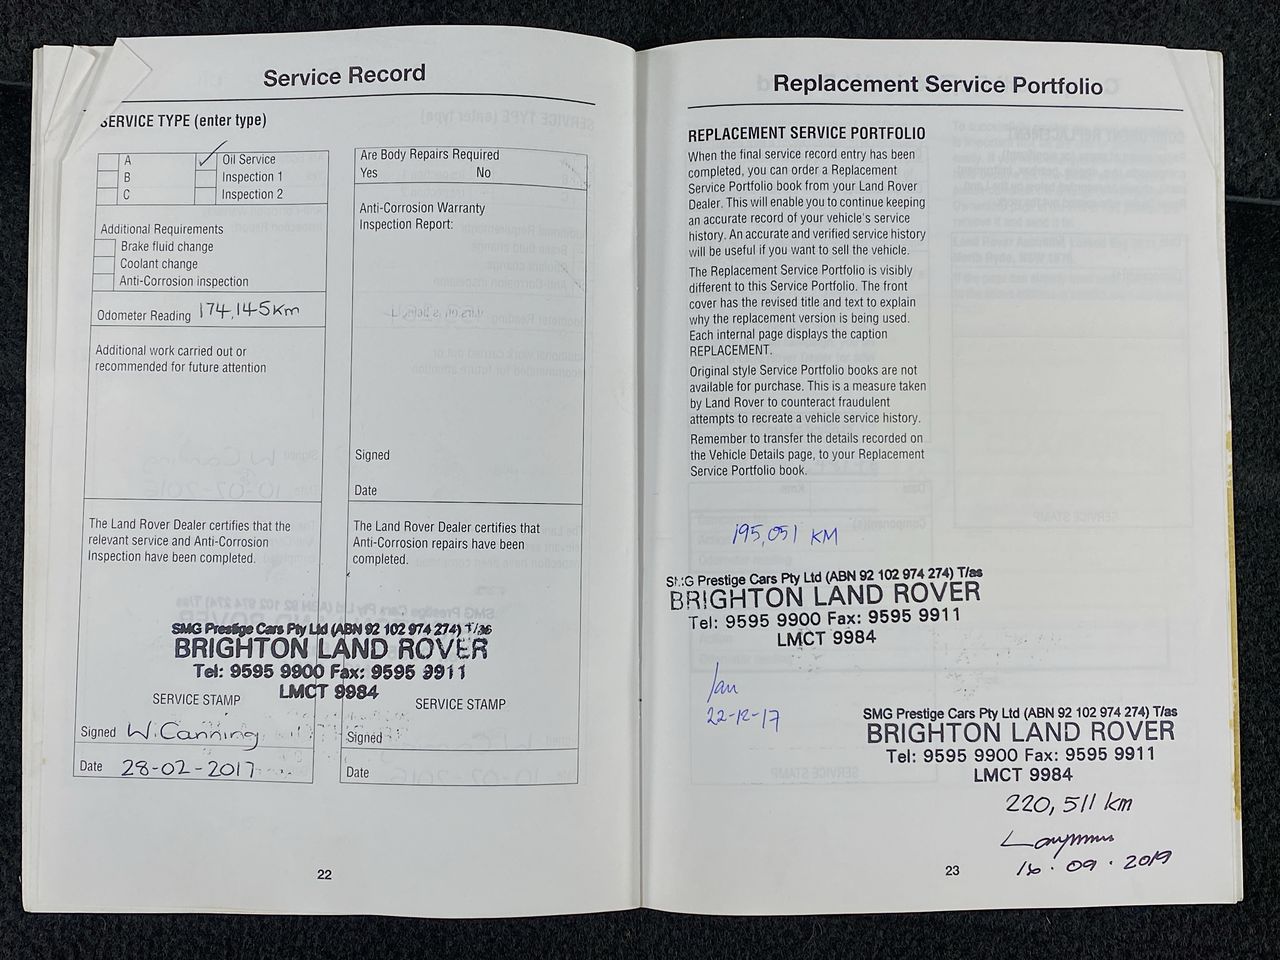 Service Record
SERVICE TYPE (enter type)
A
B
C
Oil Service
Inspection 1
Inspection 2
Additional Requirements
Brake fluid change
Coolant change
Anti-Corrosion inspection
Odometer Reading 174,145km
Additional work carried out or
recommended for future attention
The Land Rover Dealer certifies that the
relevant service and Anti-Corrosion
Inspection have been completed.
Are Body Repairs Required
Yes No
Anti-Corrosion Warranty
Inspection Report:
Signed
Date
The Land Rover Dealer certifies that
Anti-Corrosion repairs have been
completed.
SMG Prestige Cars Pty Ltd (ABN 92 102 974 274) T/as
BRIGHTON LAND ROVER
Tel: 9595 9900 Fax: 9595 9911
LMCT 9984
SERVICE STAMP
Signed W.Canning
Date 28-02-2017
SERVICE STAMP
Signed
Date
22
Replacement Service Portfolio
REPLACEMENT SERVICE PORTFOLIO
When the final service record entry has been
completed, you can order a Replacement
Service Portfolio book from your Land Rover
Dealer. This will enable you to continue keeping
an accurate record of your vehicle's service
history. An accurate and verified service history
will be useful if you want to sell the vehicle.
The Replacement Service Portfolio is visibly
different to this Service Portfolio. The front
cover has the revised title and text to explain
why the replacement version is being used.
Each internal page displays the caption
REPLACEMENT.
Original style Service Portfolio books are not
available for purchase. This is a measure taken
by Land Rover to counteract fraudulent
attempts to recreate a vehicle service history.
Remember to transfer the details recorded on
the Vehicle Details page, to your Replacement
Service Portfolio book.
195,051 KM
SMG Prestige Cars Pty Ltd (ABN 92 102 974 274) T/as
BRIGHTON LAND ROVER
Tel: 9595 9900 Fax: 9595 9911
LMCT 9984
22-12-17
SMG Prestige Cars Pty Ltd (ABN 92 102 974 274) T/as
BRIGHTON LAND ROVER
Tel: 9595 9900 Fax: 9595 9911
LMCT 9984
220,511 km
16.09.2019
23